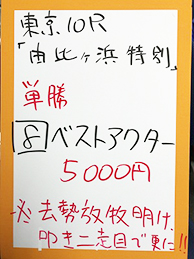 東京10R
「由比ヶ浜特別」
単勝
8ベストアクター
5000円
※去勢放牧明け、
叩き二走目で更に!!